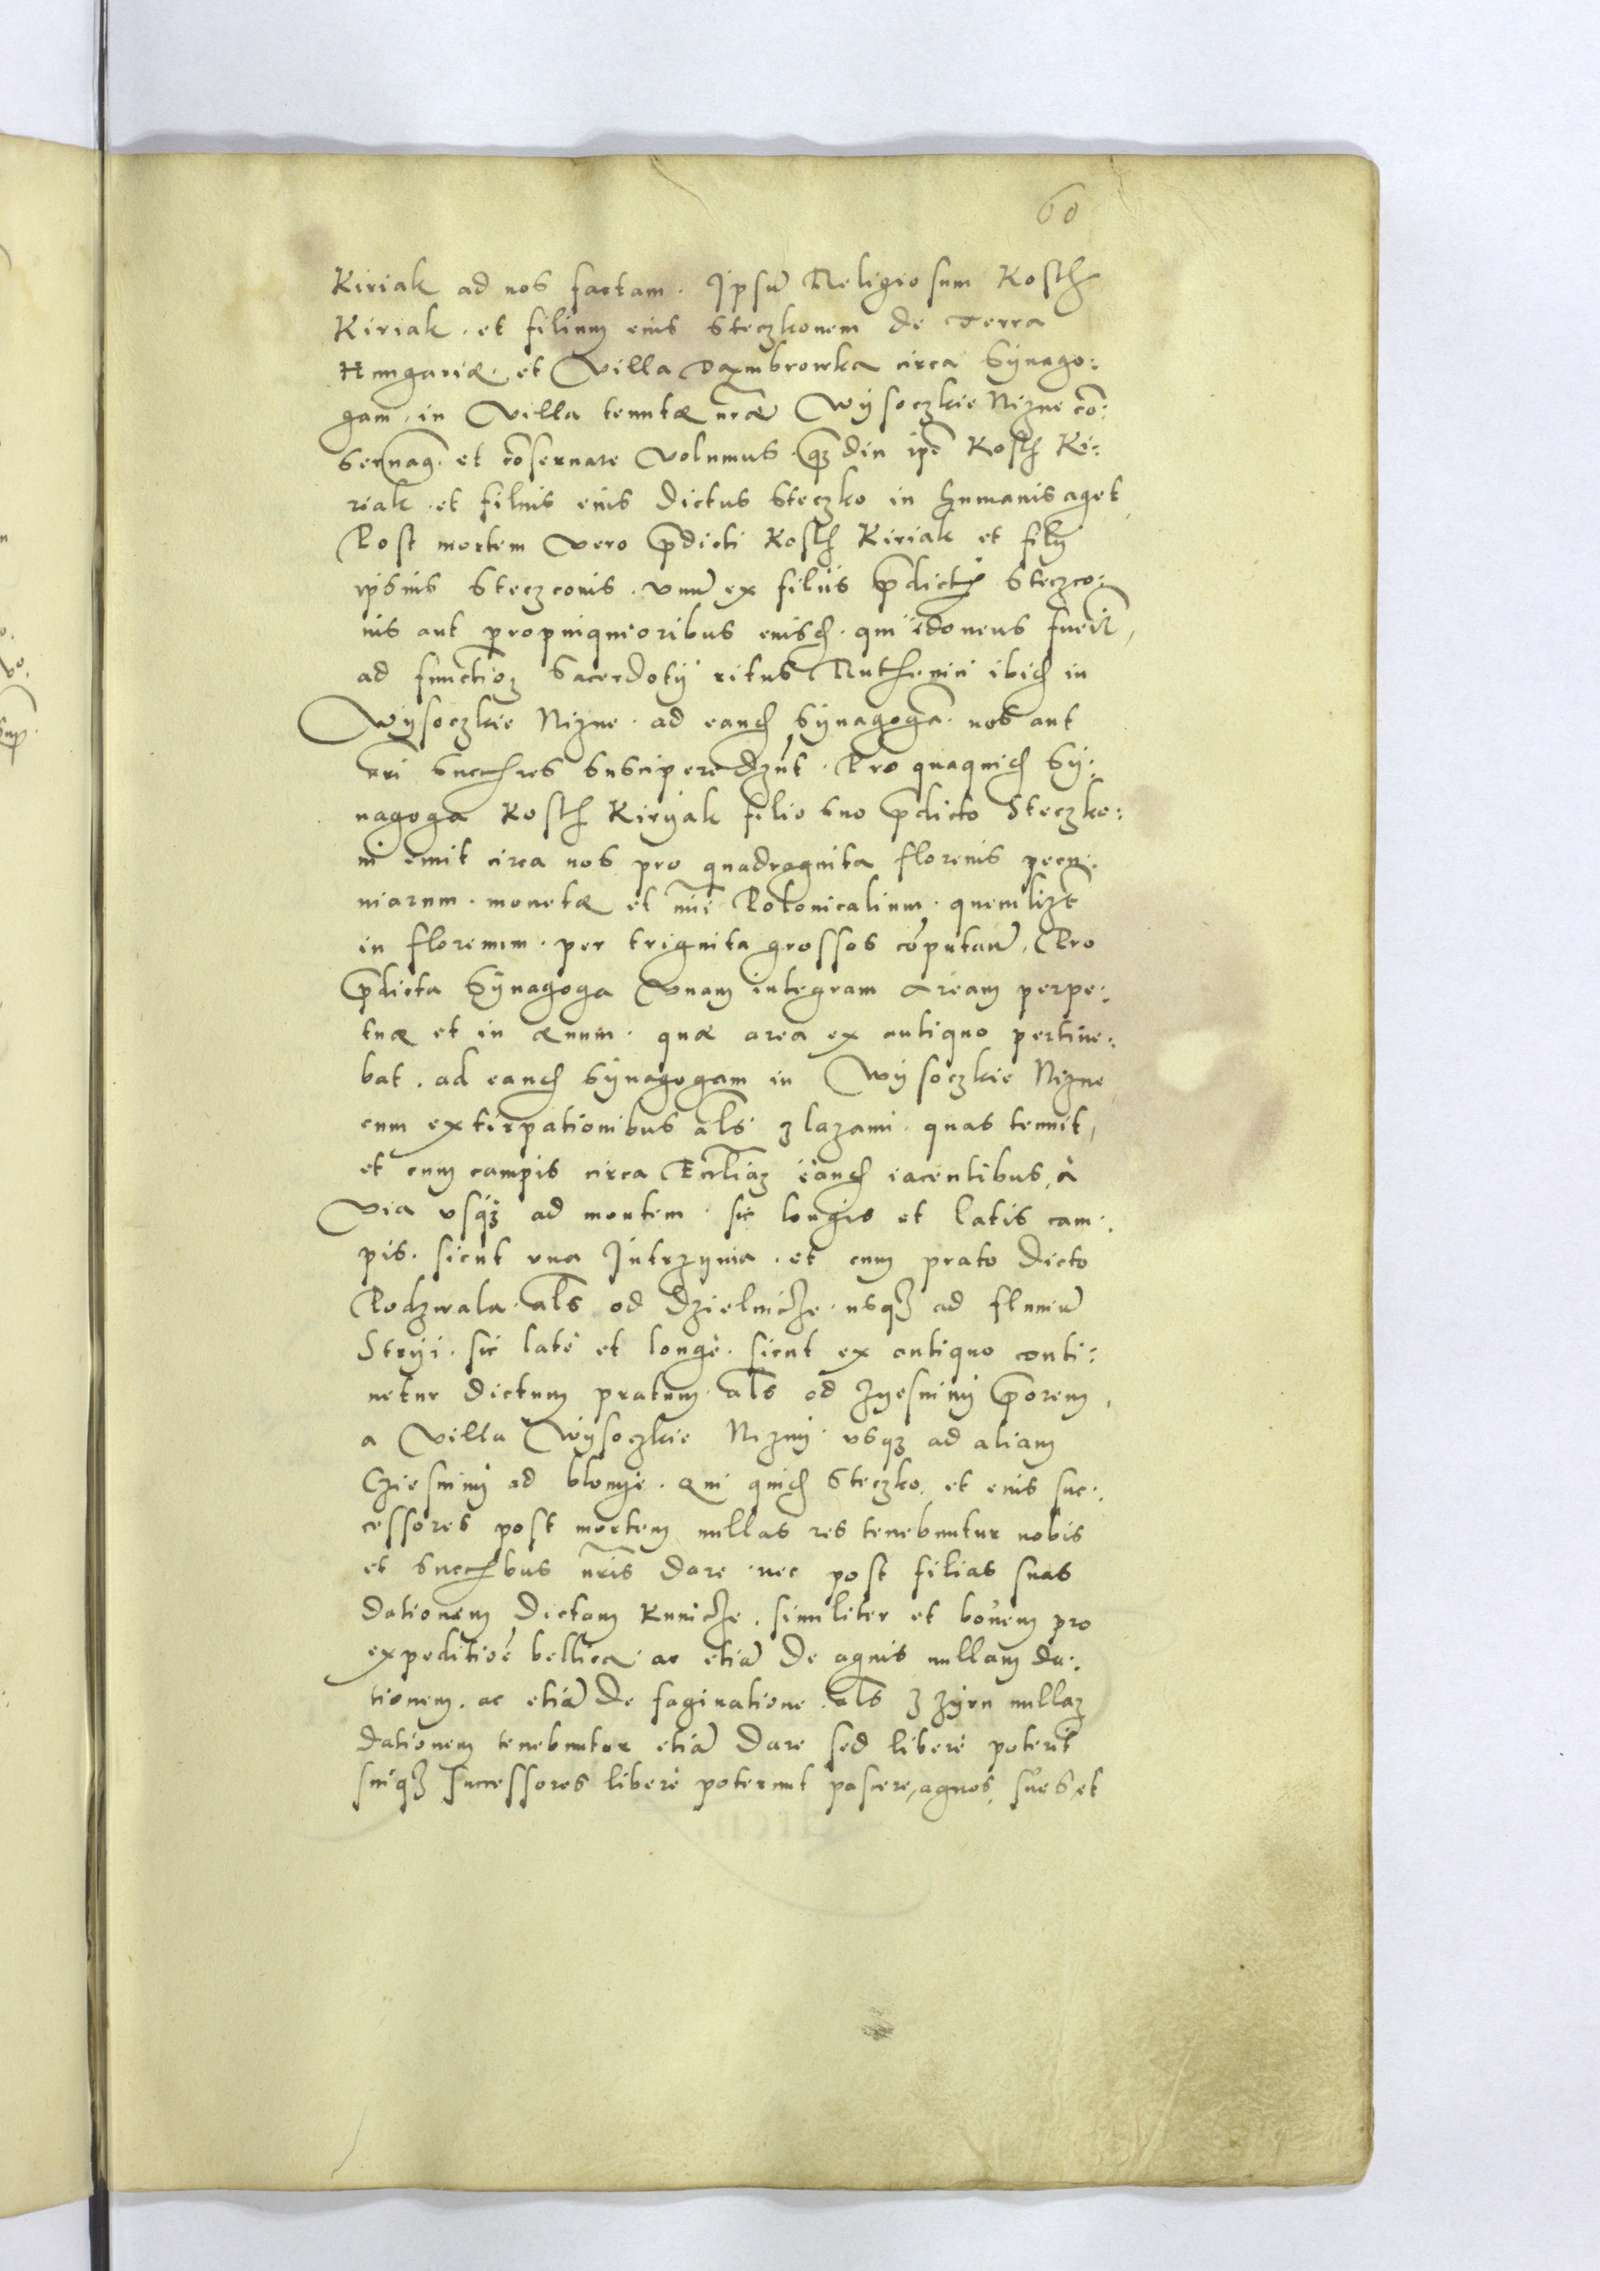 60
Kiriak ad nos factam. Ipsũ Religiosum Kosth
Kiriak. et filium eius Steczkonem de Terra
Hungariæ. et Villa Dambrowka circa Sÿnago:
gam, in Villa tenutæ nr̃æ Wÿsoczkie Nizne cõ:
seruag. et cõseruare Volumus. qz diu ipẽ Kosth Ki:
riak. et filius eius dictus Steczko in humanis aget
Post mortem Vero p̃dicti Kosth Kiriak et filÿ
ipsius Steczconis. Vnũ ex filiis p̃dicti Steczco:
nis aut propinquioribus eiusd. qui idoneus fuerit,
ad functioz Sacerdotÿ ritus Ruthenici ibid in
Wÿsoczkie Nizne. ad eand Sÿnagogã. nos aut
nr̃i succres suscipere d̃zũt. Pro quaquid Sÿ:
nagoga Kosth Kirÿak filio suo p̃dicto Steczko:
ni emit circa nos pro quadraginta florenis pecu:
niarum. monetæ et nũi Polonicalium. quemlizt
in florenum. per triginta grossos cõputanð. Pro
p̃dicta Sÿnagoga Vnam integram Aream perpe:
tuæ et in æuum. quæ area ex antiquo pertine:
bat. ad eand Sÿnagogam in Wÿsoczkie Nizne
cum extirpationibus als̃ z lazami. quas tenuit,
et cum campis circa Eccl̃iaz eand iacentibus, à
Via vsqz ad montem. sic longis et latis cam:
pis. sicut vna Jutrzyna. et cum prato dicto
Podzwala. als̃ od Dzielnicze. usqz ad fluuiũ
Strÿi. sic latè et longè. sicut ex antiquo conti:
netur dictum pratum. als̃ od Zyesninÿ p̃orem,
a Villa Wÿsoczkie Niznÿ. vsqz ad aliam
Cziesninÿ ad blonye. Qui quid Steczko. et eius suc:
cessores post mortem nullas res tenebuntur nobis
et succbus nr̃is dare. nec post filias suas
dationem dictam Kunicze. similiter et bouem pro
expeditiõe bellica. ac etiã de agnis nullam da:
tionem. ac etiã de saginatione. als̃ z zÿru nullaz
dationem tenebuntur etiã dare sed liberè poterit
suiqz Successores liberè poterunt pascere, agnos, sues, et